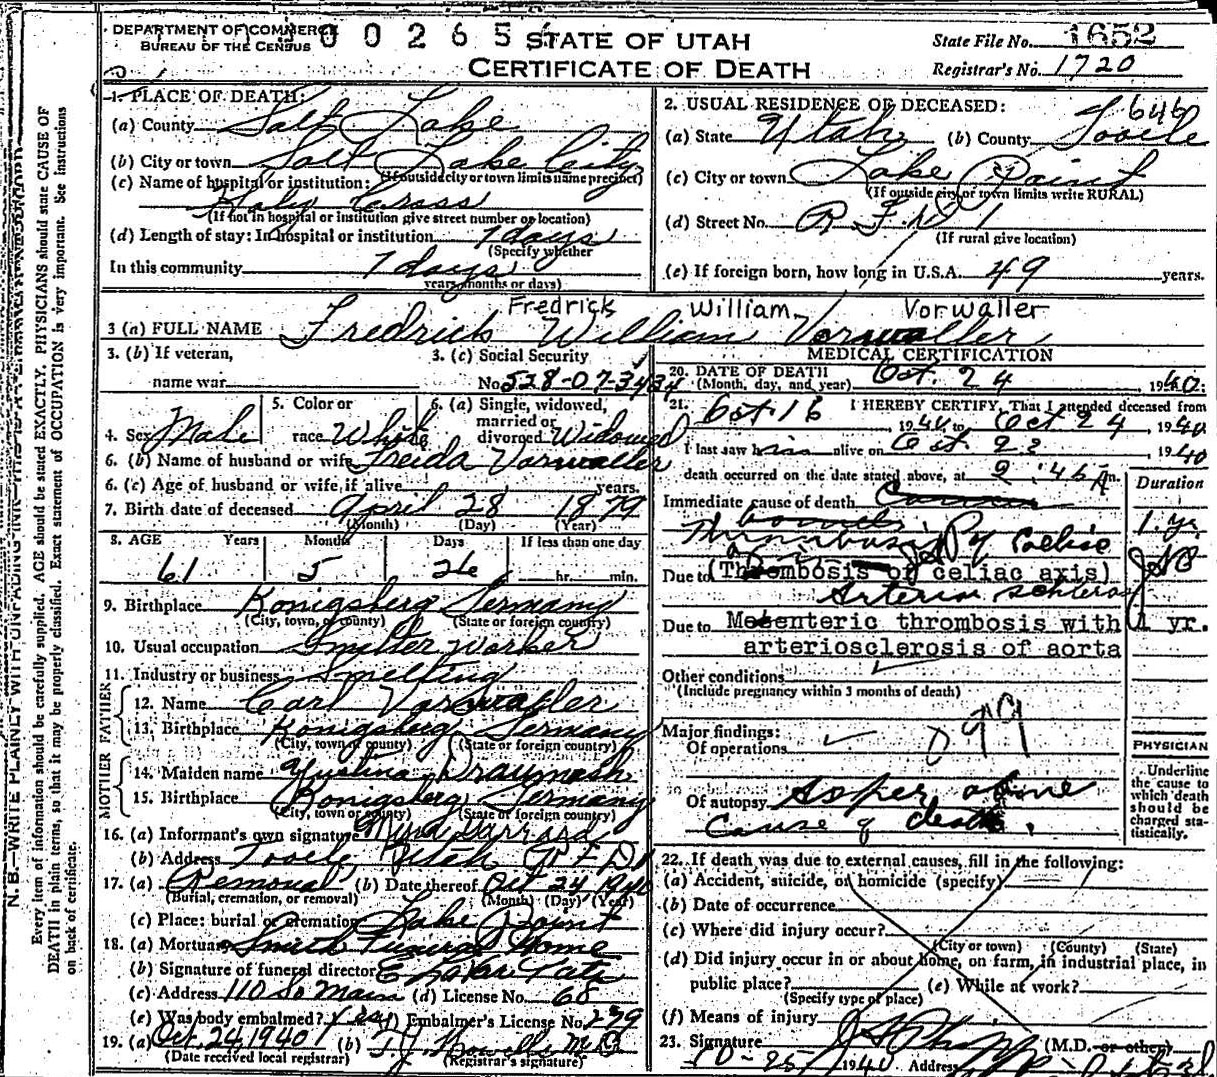 DEPARTMENT OF COMMERCE
BUREAU OF THE CENSUS
0 0 2 6 5
STATE OF UTAH
CERTIFICATE OF DEATH
State File No. 1652
Registrar's No. 1720
N. B.—WRITE PLAINLY WITH UNFADING INK
Every item of information should be carefully supplied. AGE should be stated EXACTLY. PHYSICIANS should state CAUSE OF
DEATH in plain terms, so that it may be properly classified. Exact statement of OCCUPATION is very important. See instructions
on back of certificate.
1. PLACE OF DEATH:
(a) County Salt Lake
(b) City or town Salt Lake City
(If outside city or town limits name precinct)
(c) Name of hospital or institution:
Holy Cross
(If not in hospital or institution give street number or location)
(d) Length of stay: In hospital or institution 7 days
(Specify whether
In this community 7 days
years, months or days)
2. USUAL RESIDENCE OF DECEASED: 646
(a) State Utah (b) County Tooele
(c) City or town Lake Point
(If outside city or town limits write RURAL)
(d) Street No. R F D 1
(If rural give location)
(e) If foreign born, how long in U.S.A. 49 years.
Fredrick William Vorwaller
3 (a) FULL NAME Fredrick William Vorwaller
3. (b) If veteran,
name war
3. (c) Social Security
No. 528-07-3434
4. Sex Male
5. Color or
race White
6. (a) Single, widowed,
married or
divorced Widowed
6. (b) Name of husband or wife Freida Vorwaller
6. (c) Age of husband or wife, if alive years.
7. Birth date of deceased April 28 1879
(Month) (Day) (Year)
8. AGE Years Months Days If less than one day
61 5 26 hr. min.
9. Birthplace Konigsberg Germany
(City, town, or county) (State or foreign country)
10. Usual occupation Smelter worker
11. Industry or business Smelting
FATHER
12. Name Carl Vorwaller
13. Birthplace Konigsberg Germany
(City, town or county) (State or foreign country)
MOTHER
14. Maiden name
15. Birthplace Konigsberg Germany
(City, town or county) (State or foreign country)
16. (a) Informant's own signature
(b) Address Tooele, Utah R F D 1
17. (a) Removal (b) Date thereof Oct 24 1940
(Burial, cremation, or removal) (Month) (Day) (Year)
(c) Place: burial or cremation Lake Point
18. (a) Mortuary Smith Funeral Home
(b) Signature of funeral director Tate
(c) Address 110 So Main (d) License No. 68
(e) Was body embalmed? Yes (f) Embalmer's License No. 239
19. (a) Oct. 24 1940 (b) M.D.
(Date received local registrar) (Registrar's signature)
MEDICAL CERTIFICATION
20. DATE OF DEATH
(Month, day, and year) Oct. 24, 1940
21. I HEREBY CERTIFY, That I attended deceased from
Oct 16 1940 to Oct 24, 1940
I last saw him alive on Oct 23 1940
death occurred on the date stated above, at 2:45 A m.
Duration
Immediate cause of death
Thrombosis of Coeliac 1 yr.
axis
Due to (Thrombosis of celiac axis)
Arterio sclerosis
Due to Mesenteric thrombosis with 1 yr.
arteriosclerosis of aorta
Other conditions
(Include pregnancy within 3 months of death)
Major findings:
Of operations
Of autopsy As per above
cause of death.
PHYSICIAN
Underline
the cause to
which death
should be
charged sta-
tistically.
22. If death was due to external causes, fill in the following:
(a) Accident, suicide, or homicide (specify)
(b) Date of occurrence
(c) Where did injury occur?
(City or town) (County) (State)
(d) Did injury occur in or about home, on farm, in industrial place, in
public place? (e) While at work?
(Specify type of place)
(f) Means of injury
23. Signature (M.D. or other)
10-25 1940 Address